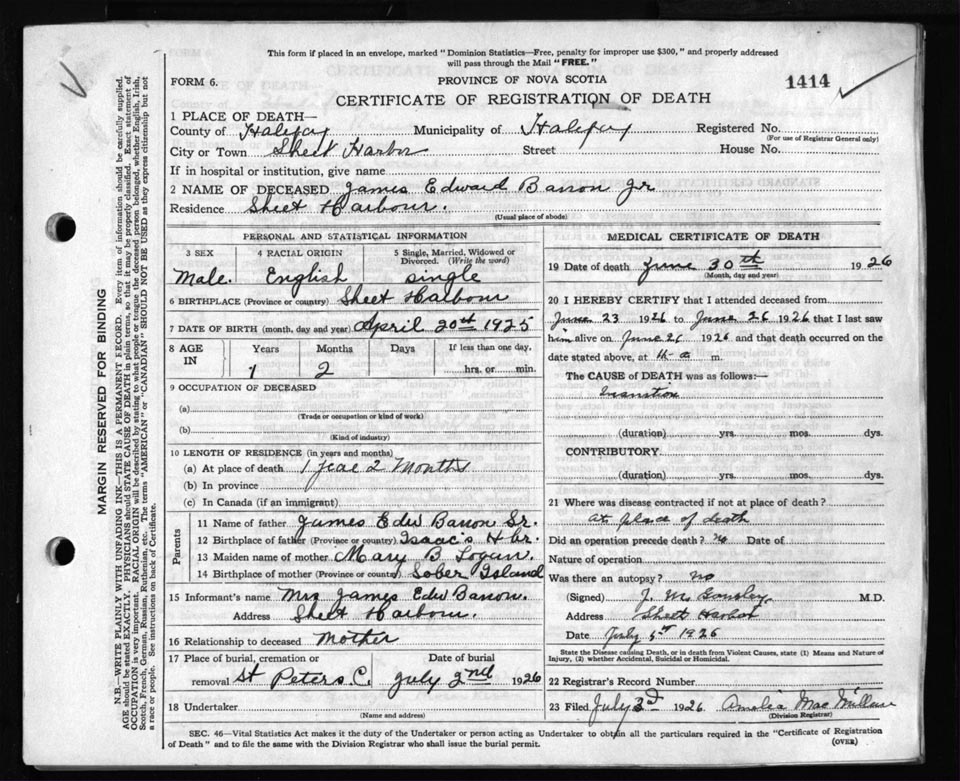 This form if placed in an envelope, marked "Dominion Statistics—Free, penalty for improper use $300," and properly addressed
will pass through the Mail "FREE."
FORM 6.
PROVINCE OF NOVA SCOTIA
1414
CERTIFICATE OF REGISTRATION OF DEATH
1 PLACE OF DEATH—
County of Halifax Municipality of Halifax Registered No.
(For use of Registrar General only)
City or Town Sheet Harbor Street House No.
If in hospital or institution, give name
2 NAME OF DECEASED James Edward Barron Jr
Residence Sheet Harbour.
(Usual place of abode)
PERSONAL AND STATISTICAL INFORMATION
3 SEX 4 RACIAL ORIGIN 5 Single, Married, Widowed or Divorced. (Write the word)
Male. English single
6 BIRTHPLACE (Province or country) Sheet Harbour
7 DATE OF BIRTH (month, day and year) April 20th 1925
8 AGE IN Years Months Days If less than one day,
1 2 hrs. or min.
9 OCCUPATION OF DECEASED
(a)
(Trade or occupation or kind of work)
(b)
(Kind of industry)
10 LENGTH OF RESIDENCE (in years and months)
(a) At place of death 1 year 2 Months
(b) In province
(c) In Canada (if an immigrant)
Parents
11 Name of father James Edw Barron Sr.
12 Birthplace of father (Province or country) Isaac's Hbr.
13 Maiden name of mother Mary B Logan.
14 Birthplace of mother (Province or country) Sober Island
15 Informant's name Mrs James Edw Barron.
Address Sheet Harbour.
16 Relationship to deceased Mother
17 Place of burial, cremation or removal St Peters. C. Date of burial July 2nd 1926
18 Undertaker
(Name and address)
MEDICAL CERTIFICATE OF DEATH
19 Date of death June 30th 1926
(Month, day and year)
20 I HEREBY CERTIFY that I attended deceased from
June 23 1926 to June 26 1926 that I last saw
him alive on June 26 1926 and that death occurred on the
date stated above, at m.
The CAUSE of DEATH was as follows:—
Inanition
(duration) yrs. mos. dys.
CONTRIBUTORY
(duration) yrs. mos. dys.
21 Where was disease contracted if not at place of death?
at place of death
Did an operation precede death? no Date of
Nature of operation
Was there an autopsy? no
(Signed) J. M. M.D.
Address Sheet Harbor
Date July 1926
State the Disease causing Death, or in death from Violent Causes, state (1) Means and Nature of
Injury, (2) whether Accidental, Suicidal or Homicidal.
22 Registrar's Record Number
23 Filed July 3d 1926 Amelia MacMillan
(Division Registrar)
SEC. 46—Vital Statistics Act makes it the duty of the Undertaker or person acting as Undertaker to obtain all the particulars required in the "Certificate of Registration
of Death" and to file the same with the Division Registrar who shall issue the burial permit.
(OVER)
MARGIN RESERVED FOR BINDING
N.B.—WRITE PLAINLY WITH UNFADING INK—THIS IS A PERMANENT RECORD. Every item of information should be carefully supplied.
AGE should be stated EXACTLY. PHYSICIANS should STATE CAUSE OF DEATH in plain terms, so that it may be properly classified. Exact statement of
OCCUPATION is very important. RACIAL ORIGIN will be described by stating to what people or tongue the deceased person belonged, whether English, Irish,
Scotch, French, German, Russian, Ruthenian, etc. The terms "AMERICAN" or "CANADIAN" SHOULD NOT BE USED as they express citizenship but not
a race or people. See instructions on back of Certificate.